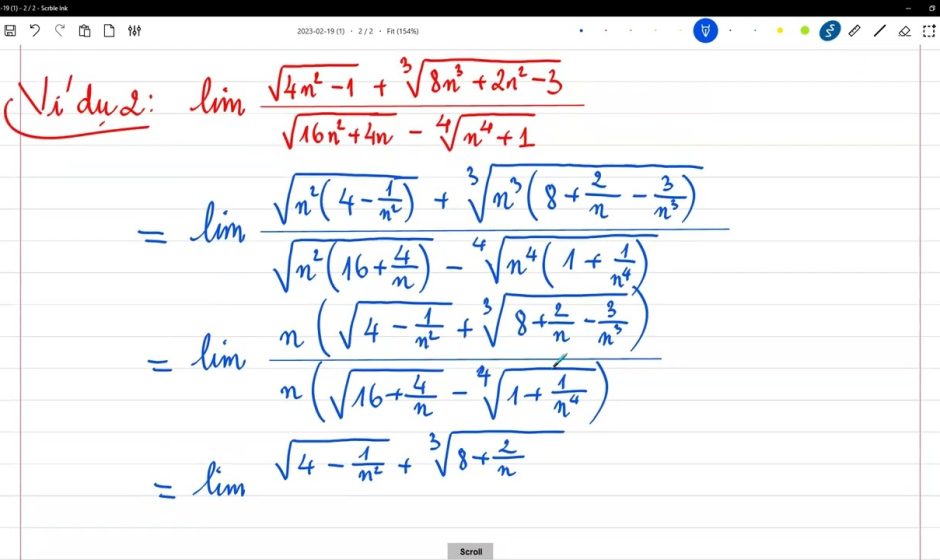 -19 (1) - 2 / 2 - Scrble Ink
2023-02-19 (1) • 2 / 2 • Fit (154%)
Ví dụ 2: lim (√(4n² - 1) + ∛(8n³ + 2n² - 3)) / (√(16n² + 4n) - ∜(n⁴ + 1))
= lim (√(n²(4 - 1/n²)) + ∛(n³(8 + 2/n - 3/n³))) / (√(n²(16 + 4/n)) - ∜(n⁴(1 + 1/n⁴)))
= lim (n(√(4 - 1/n²) + ∛(8 + 2/n - 3/n³))) / (n(√(16 + 4/n) - ∜(1 + 1/n⁴)))
= lim √(4 - 1/n²) + ∛(8 + 2/n
Scroll